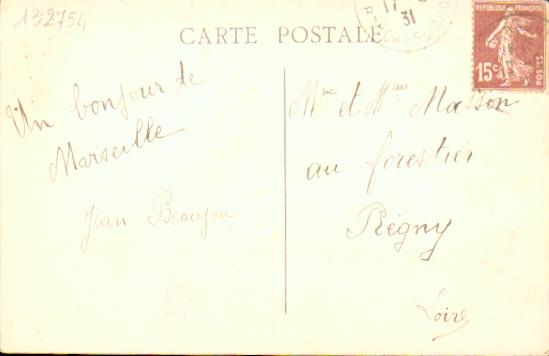 132754
CARTE POSTALE
17
31
REPUBLIQUE FRANÇAISE
15c
POSTES
Un bonjour de
Marseille
Jean
Mme et Mrs Masson
au forestier
Régny
Loire